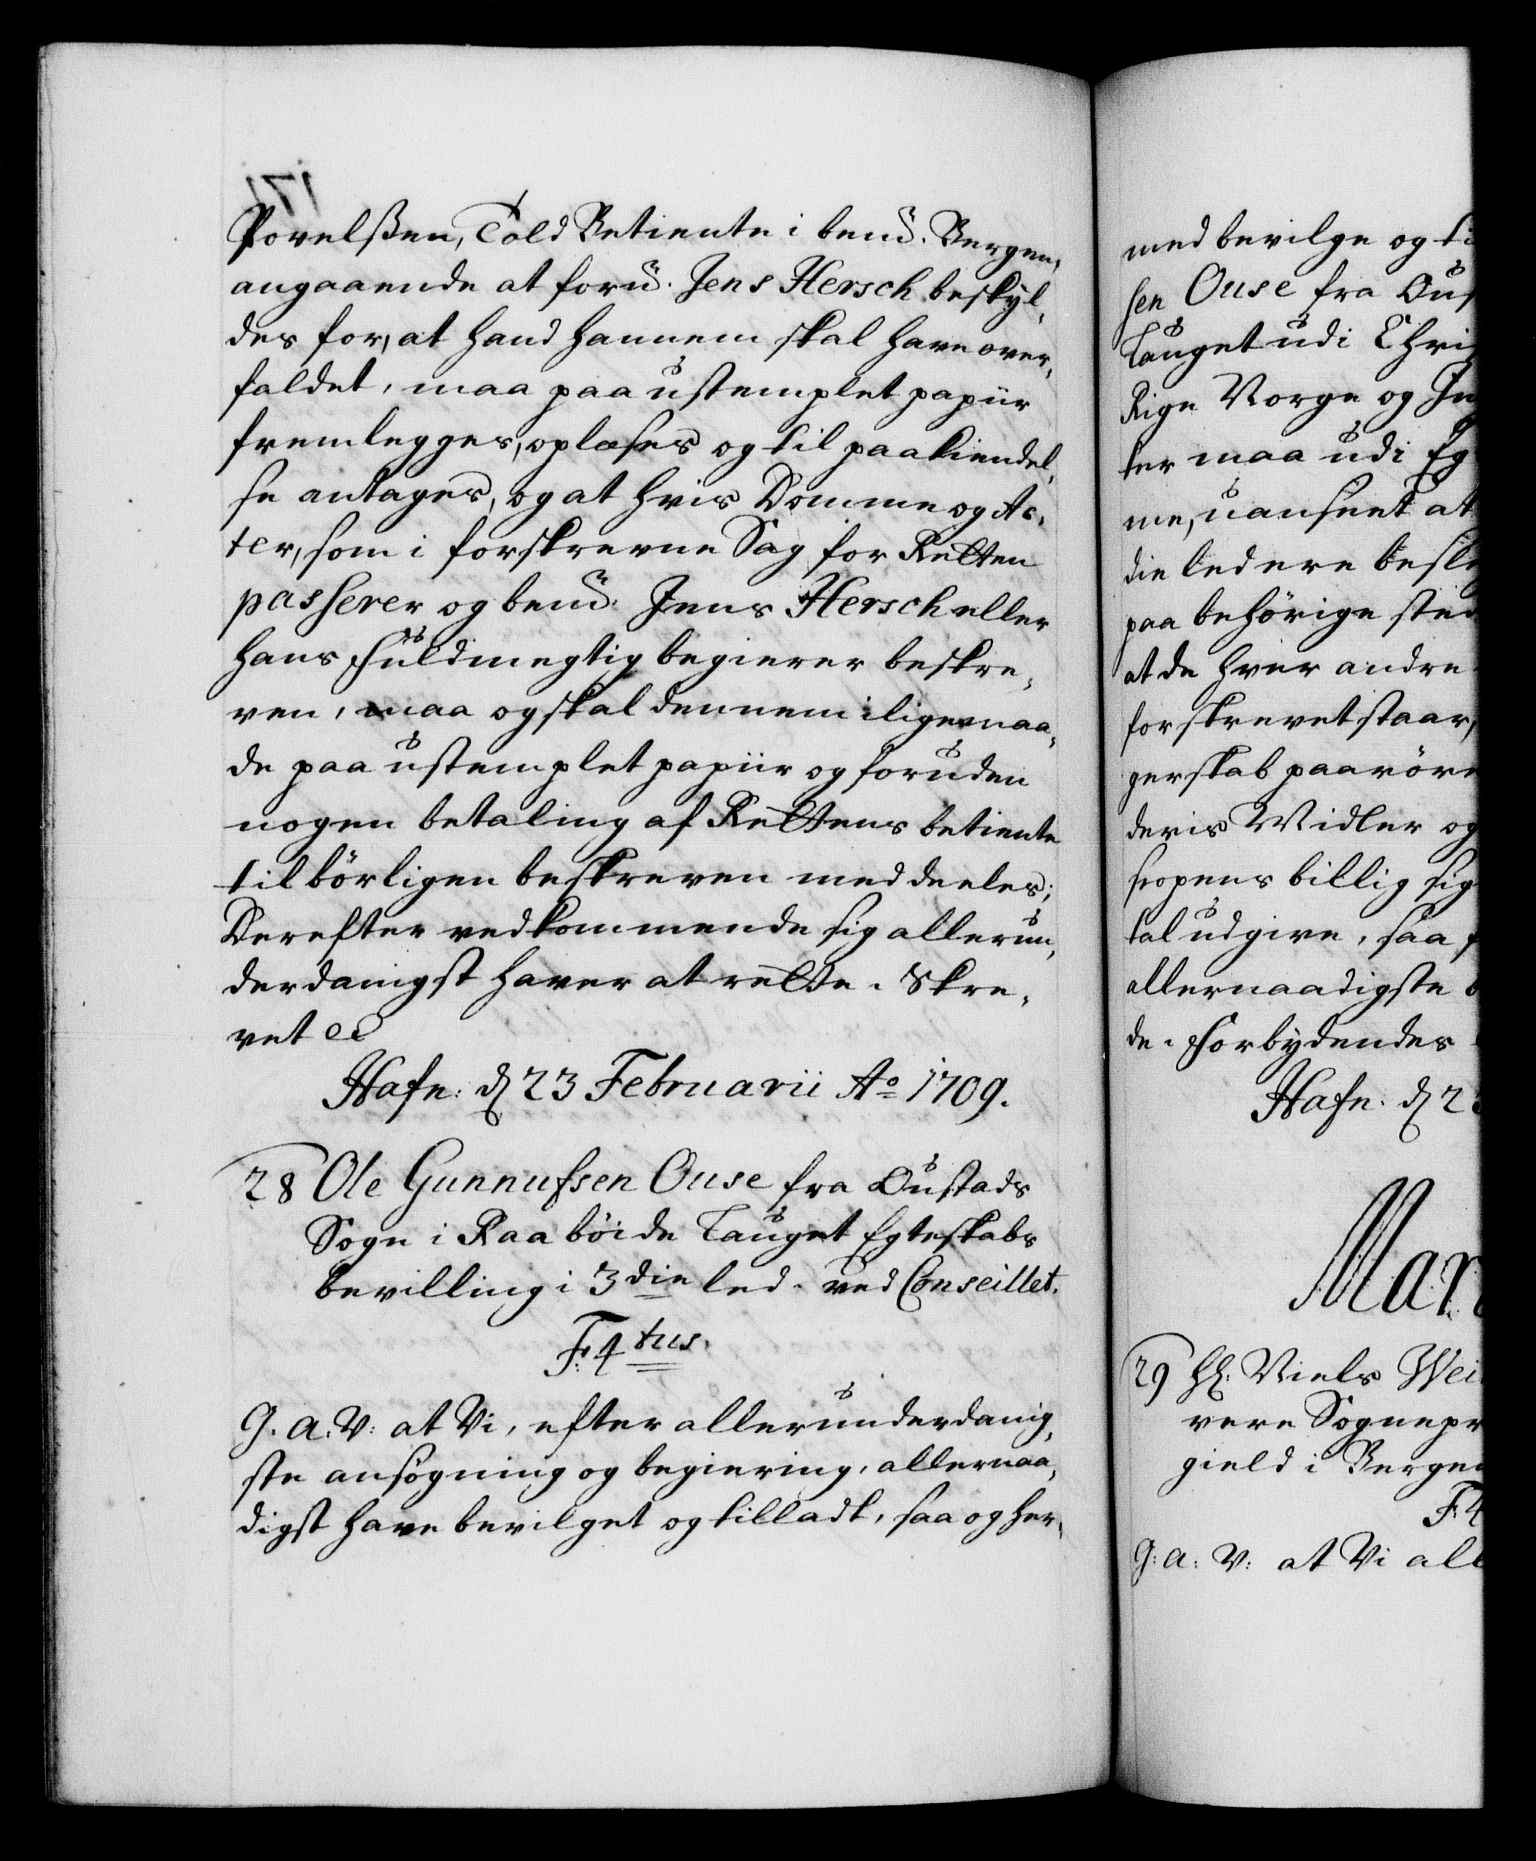 Povelßen, Told Betiente i bemd. Bergen,
angaaende at formd. Jens Hersch beskyl,
des for, at hand hannem skal have over,
faldet, maa paa ustemplet papiir
fremlegges, oplæses og til paakiendel,
se antages, og at hvis Domme og Ac,
ter, som i forskrevne Sag for Retten
passerer og bemd. Jens Hersch eller
hans Fuldmegtig begierer beskre,
ven, maa og skal dennem i ligemaa,
de paa ustemplet papiir og foruden
nogen betaling af Rettens betiente
tilbörligen beskreven meddeeles;
Derefter vedkommende sig allerun,
derdanigst haver at rette. Skre,
vet
Hafn: d 23 Februarii Ao 1709.
28 Ole Gunnufsen Ouse fra Oustads
Sogn i Raaböide Lauget Egteskabs
bevilling i 3die led. ved Conseillet.
F: 4tus.
G. A. V: at Vi, efter allerunderdanig,
ste ansögning og begiering, allernaa,
digst have bevilget og tilladt, saa og her,
med bevilge og
sen Ouse fra
Lauget udi
Rige Norge og
ter maa udi
me, uanseet at
die led ere
paa behörige
at de hver andre
forskrevet staar,
gerskab
deris Midler og
scopens billig
tal udgive, saa
allernaadigste
de. Forbydendes
Hafn. d
29 Hr: Niels
vere
gield i
G: A: V: at Vi